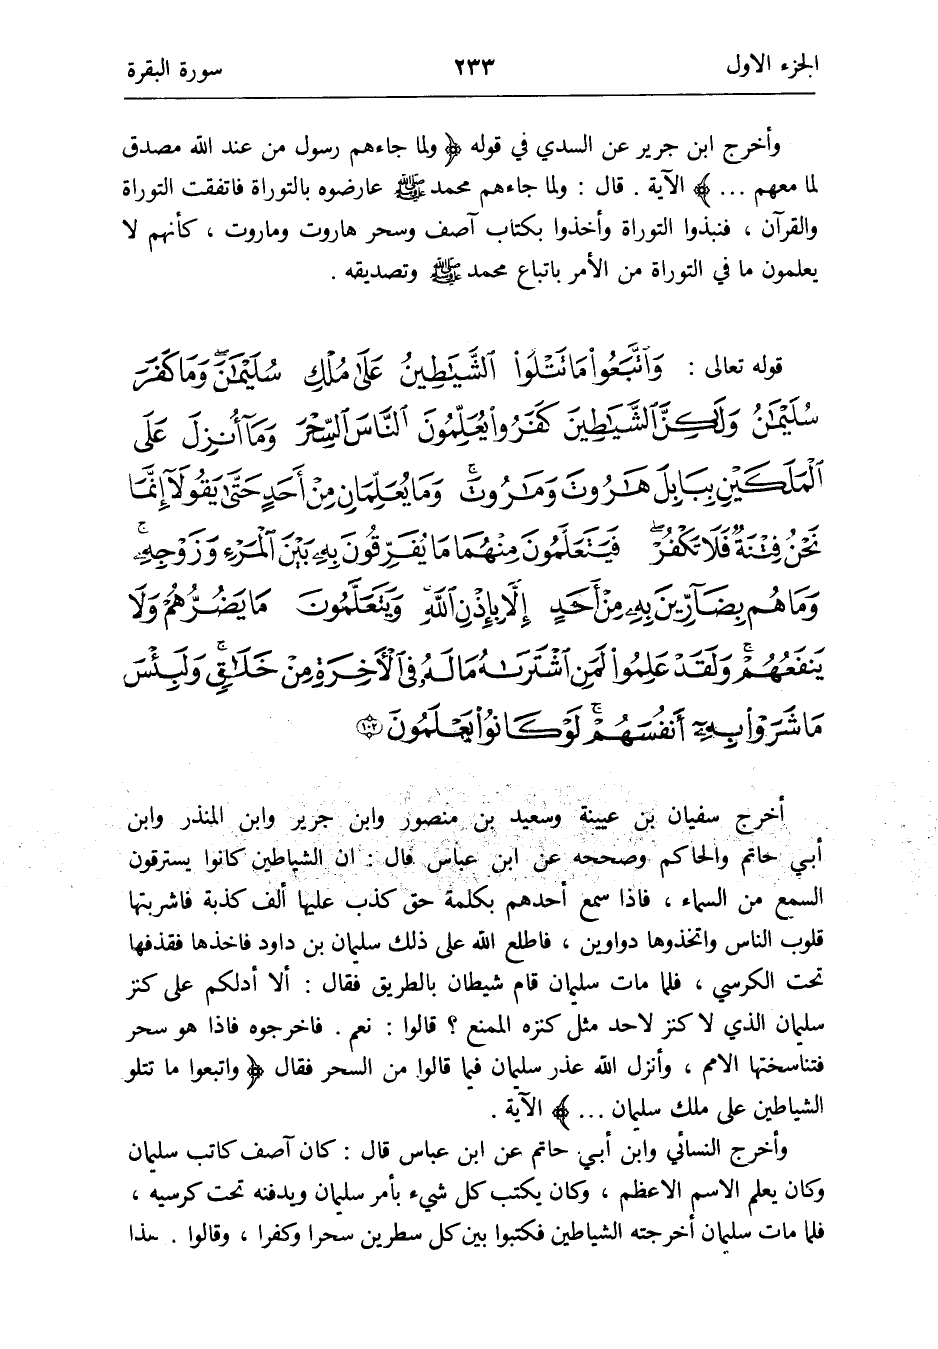 الجزء الاول ٢٣٣ سورة البقرة
وأخرج ابن جرير عن السدي في قوله ﴿ ولما جاءهم رسول من عند الله مصدق
لما معهم ... ﴾ الآية . قال : ولما جاءهم محمد ﷺ عارضوه بالتوراة فاتفقت التوراة
والقرآن ، فنبذوا التوراة وأخذوا بكتاب آصف وسحر هاروت وماروت ، كأنهم لا
يعلمون ما في التوراة من الأمر باتباع محمد ﷺ وتصديقه .
قوله تعالى : وَٱتَّبَعُوا۟ مَا تَتْلُوا۟ ٱلشَّيَـٰطِينُ عَلَىٰ مُلْكِ سُلَيْمَـٰنَ ۖ وَمَا كَفَرَ
سُلَيْمَـٰنُ وَلَـٰكِنَّ ٱلشَّيَـٰطِينَ كَفَرُوا۟ يُعَلِّمُونَ ٱلنَّاسَ ٱلسِّحْرَ وَمَآ أُنزِلَ عَلَى
ٱلْمَلَكَيْنِ بِبَابِلَ هَـٰرُوتَ وَمَـٰرُوتَ ۚ وَمَا يُعَلِّمَانِ مِنْ أَحَدٍ حَتَّىٰ يَقُولَآ إِنَّمَا
نَحْنُ فِتْنَةٌ فَلَا تَكْفُرْ ۖ فَيَتَعَلَّمُونَ مِنْهُمَا مَا يُفَرِّقُونَ بِهِۦ بَيْنَ ٱلْمَرْءِ وَزَوْجِهِۦ ۚ
وَمَا هُم بِضَآرِّينَ بِهِۦ مِنْ أَحَدٍ إِلَّا بِإِذْنِ ٱللَّهِ ۚ وَيَتَعَلَّمُونَ مَا يَضُرُّهُمْ وَلَا
يَنفَعُهُمْ ۚ وَلَقَدْ عَلِمُوا۟ لَمَنِ ٱشْتَرَىٰهُ مَا لَهُۥ فِى ٱلْأَخِرَةِ مِنْ خَلَـٰقٍ ۚ وَلَبِئْسَ
مَا شَرَوْا۟ بِهِۦٓ أَنفُسَهُمْ ۚ لَوْ كَانُوا۟ يَعْلَمُونَ ١٠٢
أخرج سفيان بن عيينة وسعيد بن منصور وابن جرير وابن المنذر وابن
أبي حاتم والحاكم وصححه عن ابن عباس قال : ان الشياطين كانوا يسترقون
السمع من السماء ، فاذا سمع أحدهم بكلمة حق كذب عليها ألف كذبة فاشربتها
قلوب الناس واتخذوها دواوين ، فاطلع الله على ذلك سليمان بن داود فاخذها فقذفها
تحت الكرسي ، فلما مات سليمان قام شيطان بالطريق فقال : ألا أدلكم على كنز
سليمان الذي لا كنز لاحد مثل كنزه الممنع ؟ قالوا : نعم . فاخرجوه فاذا هو سحر
فتناسختها الامم ، وأنزل الله عذر سليمان فيما قالوا من السحر فقال ﴿ واتبعوا ما تتلو
الشياطين على ملك سليمان ... ﴾ الآية .
وأخرج النسائي وابن أبي حاتم عن ابن عباس قال : كان آصف كاتب سليمان
وكان يعلم الاسم الاعظم ، وكان يكتب كل شيء بأمر سليمان ويدفنه تحت كرسيه ،
فلما مات سليمان أخرجته الشياطين فكتبوا بين كل سطرين سحرا وكفرا ، وقالوا . هذا